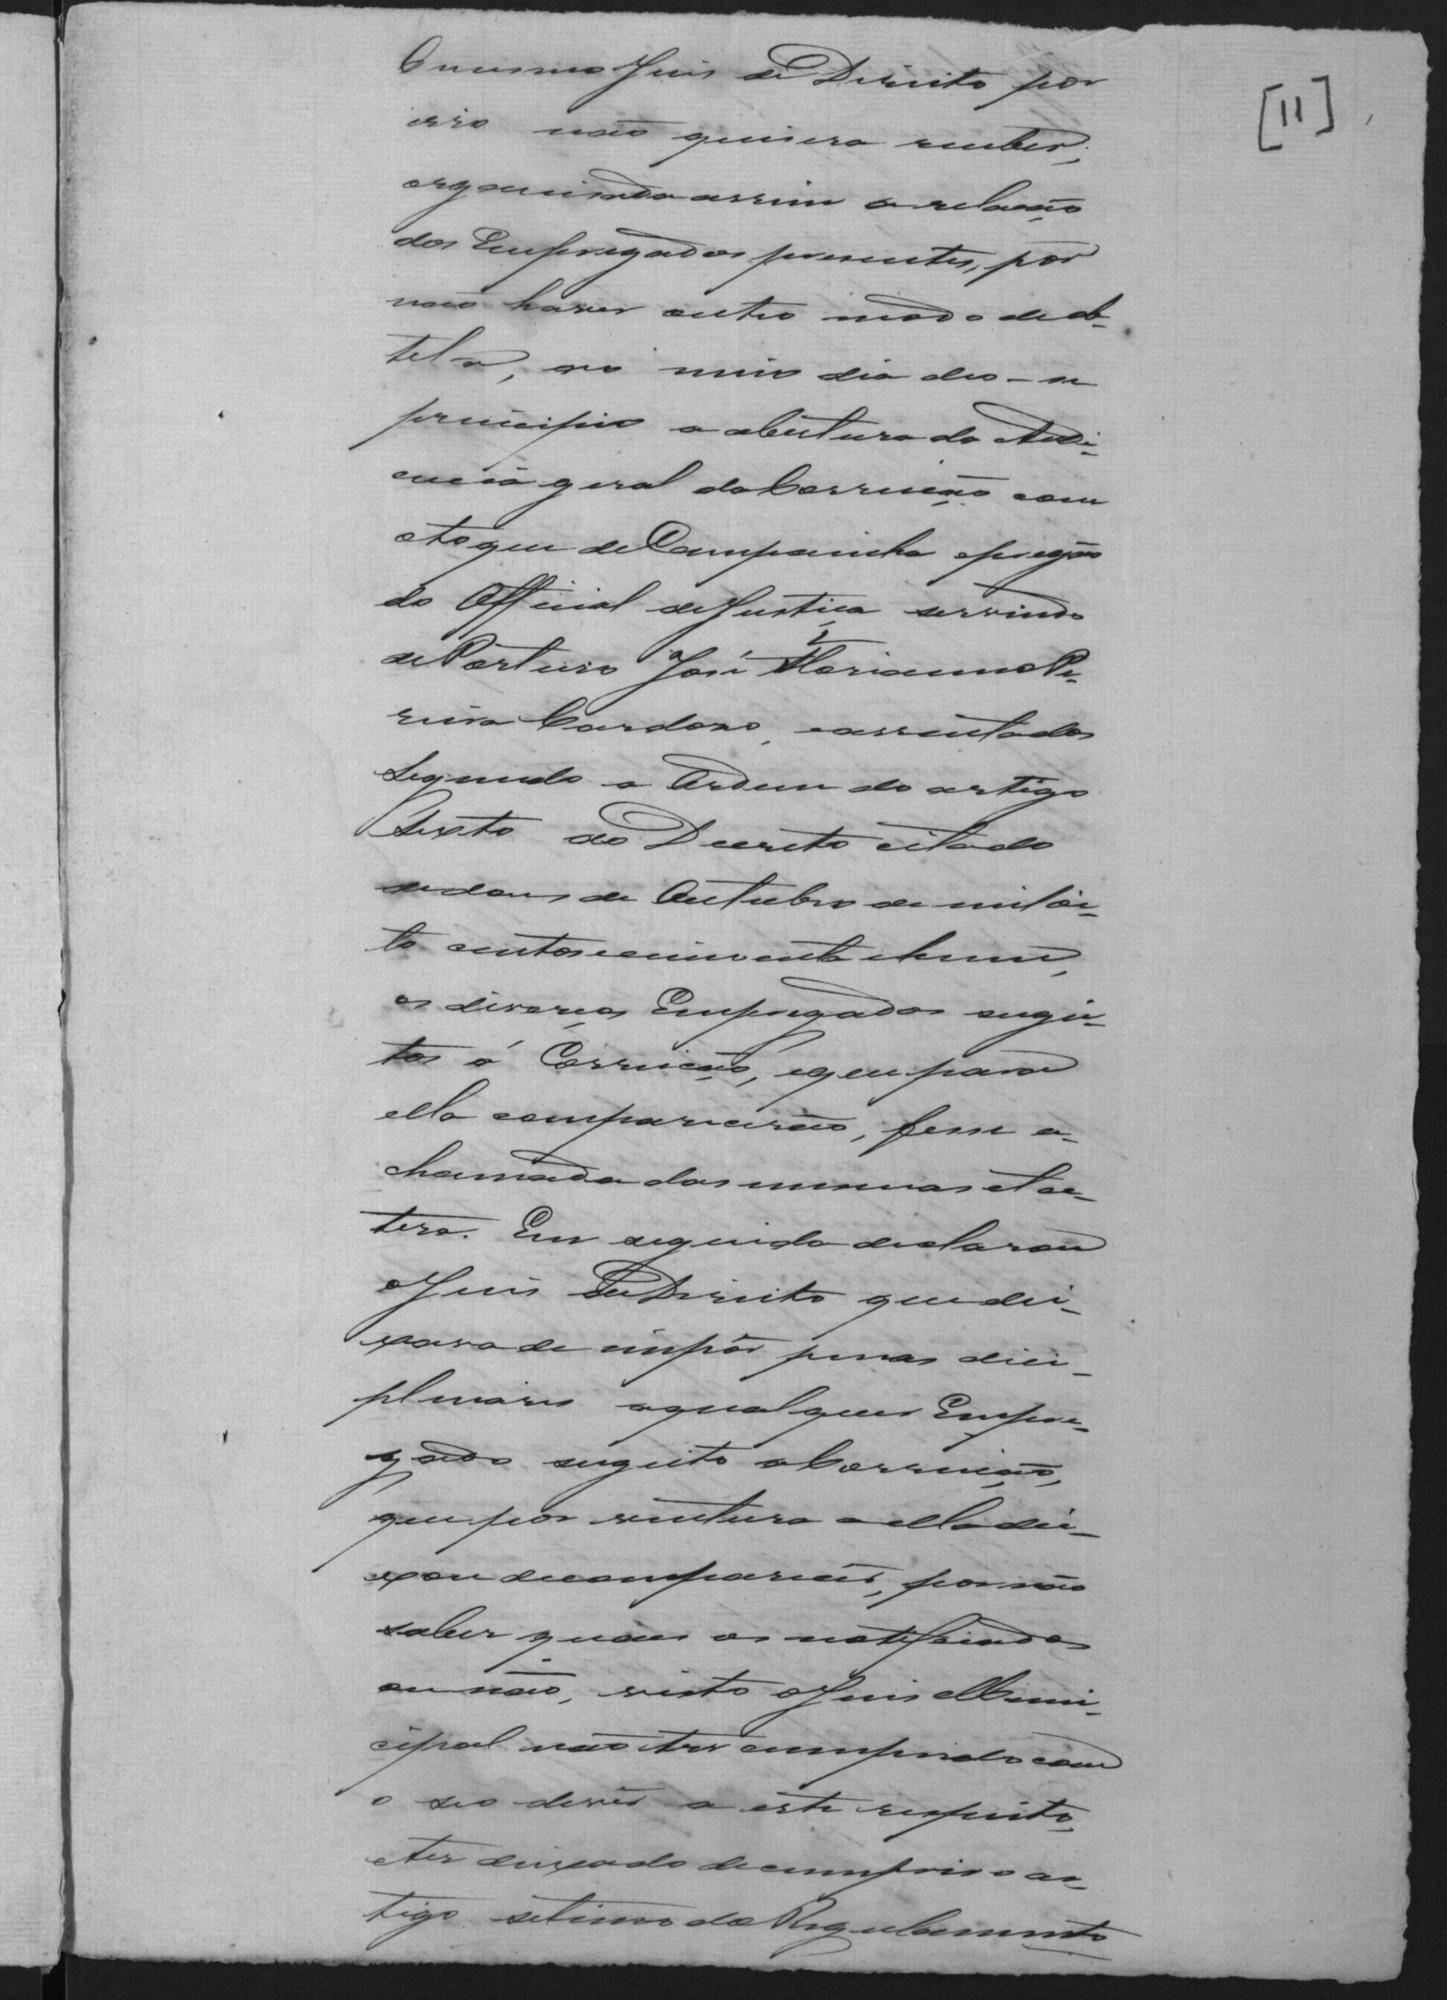 [11]
O mesmo Juis de Direito por
isso não quisera receber,
organisada assim a relação
dos Empregados presentes, por
não haver outro modo de ob-
tel-a, ao meio dia deo-se
principio a abertura da Audi-
encia geral da Correição com
o toque de Campainha e pregão
do Official de Justiça servindo
de Porteiro José Marianno Pe-
reira Cardoso, e assentados
segundo a Ordem do artigo
Sexto do Decreto citado
de dous de Outubro de mil oi-
to centos e cincoenta e hum,
os diversos Empregados sugei-
tos á Correição, e que para
ella comparecerão, fes-se a
chamada dos mesmos et cæ-
tera. Em seguida declarou
o Juis de Direito que dei-
xava de impôr penas dici-
plinares a qualquer Empre-
gado sugeito a Correição,
que por ventura a ella dei-
xou de comparecer, por não
saber quaes os notificados
ou não, visto o Juis Muni-
cipal não ter cumprido com
o seo dever a este respeito,
e ter deixado de cumprir o ar-
tigo setimo do Regulamento